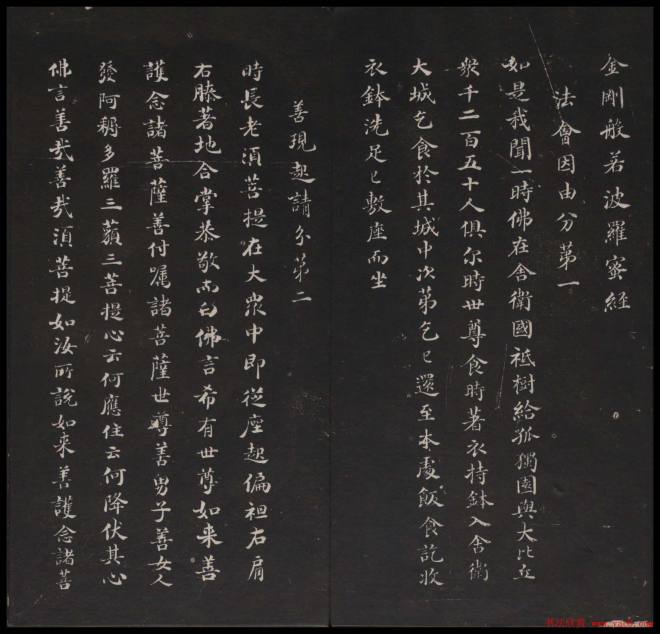 金剛般若波羅蜜經
法會因由分第一
如是我聞一時佛在舍衛國祇樹給孤獨園與大比丘
眾千二百五十人俱尒時世尊食時著衣持鉢入舍衛
大城乞食於其城中次第乞已還至本處飯食訖收
衣鉢洗足已敷座而坐
善現起請分第二
時長老須菩提在大眾中即從座起偏袒右肩
右膝著地合掌恭敬而白佛言希有世尊如來善
護念諸菩薩善付囑諸菩薩世尊善男子善女人
發阿耨多羅三藐三菩提心云何應住云何降伏其心
佛言善哉善哉須菩提如汝所說如來善護念諸菩